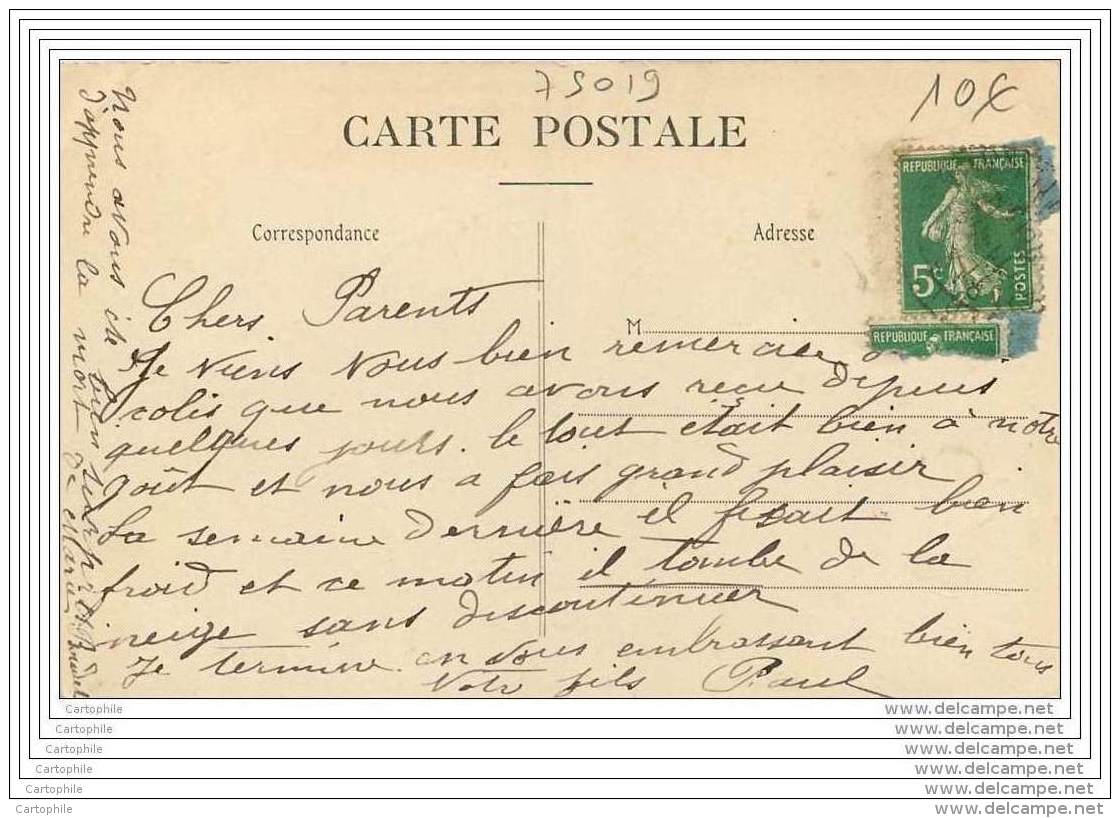 75019
10€
CARTE POSTALE
Correspondance
Adresse
REPUBLIQUE FRANÇAISE
5c
POSTES
REPUBLIQUE FRANÇAISE
M
Chers Parents
Je viens vous bien remercier du
colis que nous avons reçu depuis
quelques jours. le tout était bien à notre
goût et nous a fais grand plaisir
La semaine dernière il fesait bien
froid et ce matin il tombe de la
neige sans discontinuer
Je termine en vous embrassant bien tous
Votre fils Paul
Nous avons été bien surpris
d'apprendre la mort de Marie
Cartophile
www.delcampe.net
Cartophile
www.delcampe.net
Cartophile
www.delcampe.net
Cartophile
www.delcampe.net
Cartophile
www.delcampe.net
Cartophile
www.delcampe.net